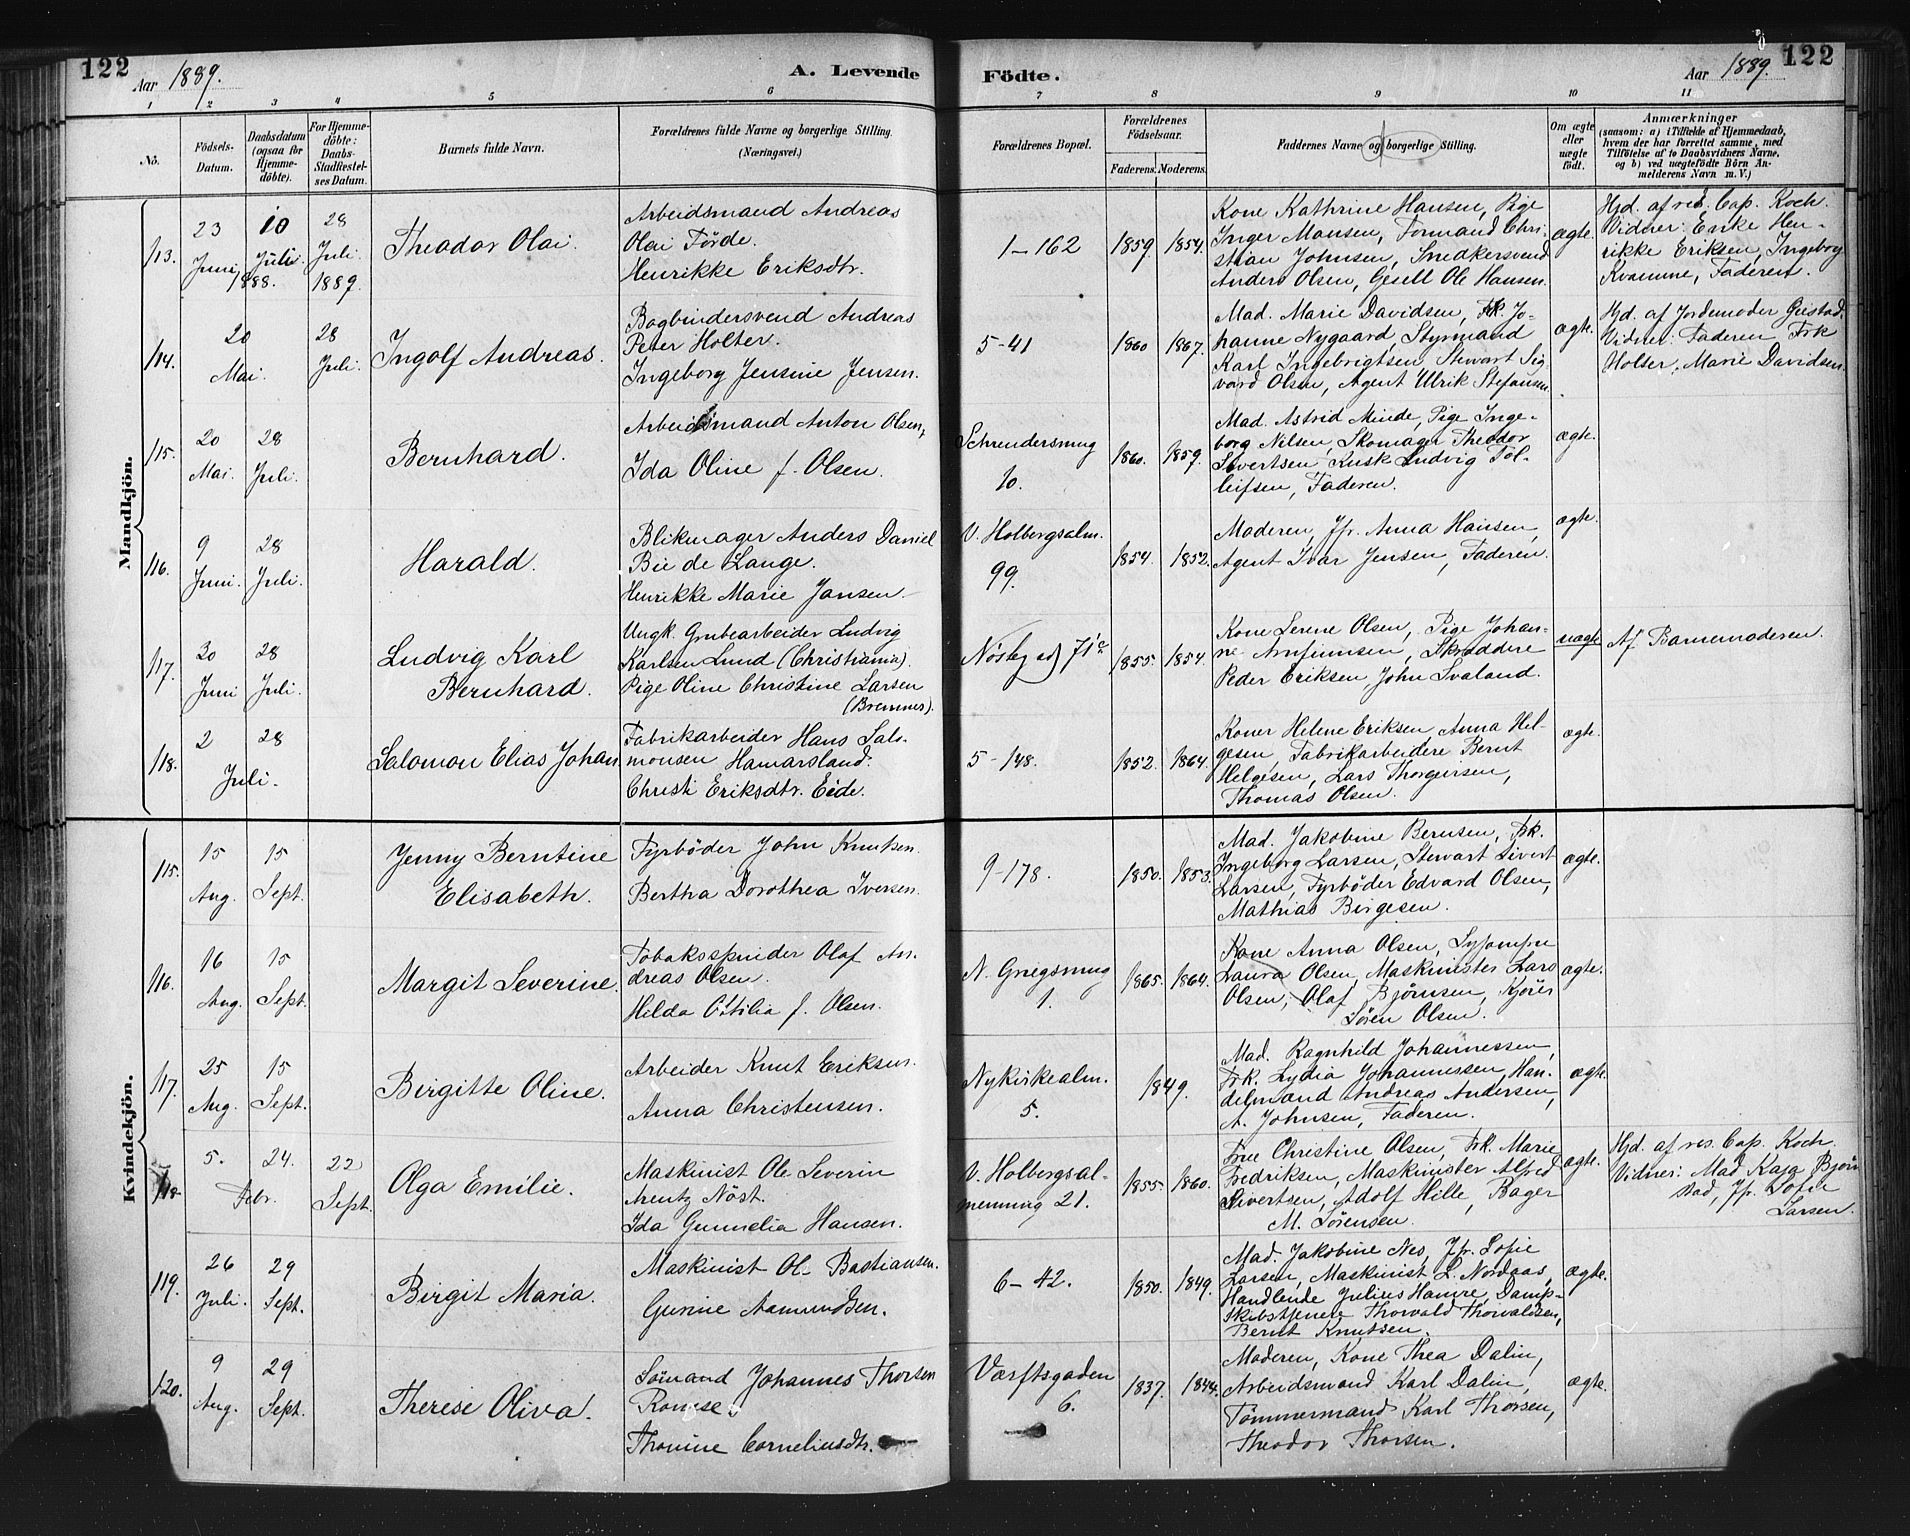 122
Aar 1889.
A. Levende Födte.
Aar 1889.
122
1 2 3 4 5 6 7 8 9 10 11
No.
Födsels-
Datum.
Daabsdatum
(ogsaa for
Hjemme-
döbte).
For Hjemme-
döbte:
Daabs-
Stadfæstel-
ses Datum.
Barnets fulde Navn.
Forældrenes fulde Navne og borgerlige Stilling.
(Næringsvei.)
Forældrenes Bopæl.
Forældrenes
Födselsaar.
Faderens. Moderens.
Faddernes Navne og borgerlige Stilling.
Om ægte
eller
uægte
födt.
Anmærkninger
(saasom: a) i Tilfælde af Hjemmedaab,
hvem der har forrettet samme, med
Tilföielse af to Daabsvidners Navne,
og b) ved uægtefödte Börn An-
melderens Navn m. V.)
Mandkjön.
113.
23
Juni
10
Juli
1888.
28
Juli
1889.
Theodor Olai.
Arbeidsmand Andreas
Olai Förde.
Henrikke Eriksdtr.
1–162
1859.
1854.
Kone Kathrine Hansen, Pige
Inger Monsen, Formand Chri-
stian Johnsen, Snedkersvend
Anders Olsen, Gesell Ole Hansen.
ægte.
Hjd. af res. Cap. Koch.
Vidner: Enke Hen-
rikke Eriksen, Ingeborg
Kvamme, Faderen.
114.
20
Mai.
28
Juli.
Ingolf Andreas.
Bogbindersvend Andreas
Peter Holter.
Ingeborg Jensine Jensen.
5-41
1860
1867.
Mad. Marie Davidsen, Frk. Jo-
hanne Nygaard, Styrmand
Karl Ingebrigtsen, Stewart Sig-
vard Olsen, Agent Ulrik Stefansen.
ægte.
Hjd. af Jordemoder Geistad.
Vidner: Faderen, Frk
Holter, Marie Davidsen.
115.
20
Mai.
28
Juli.
Bernhard.
Arbeidsmand Anton Olsen,
Ida Oline f. Olsen.
Schrendersmug
10.
1860.
1859.
Mad. Astrid Minde, Pige Inge-
borg Nilsen, Skomager Theodor
Sivertsen, Kusk Ludvig Tol-
leifsen, Faderen.
ægte.
116.
9
Juni.
28
Juli.
Harald.
Blikmager Anders Daniel
Bie de Lange.
Henrikke Marie Jansen.
V. Holbergsalm.
99.
1854.
1852.
Moderen, Jfr. Anna Hansen,
Agent Ivar Jensen, Faderen.
ægte.
117.
20
Juni
28
Juli.
Ludvig Karl
Bernhard.
Ungk. Grubearbeider Ludvig
Karlsen Lund (Christiania).
Pige Oline Christine Larsen
(Bremnes).
71
1855.
1854.
Kone Serene Olsen, Pige Johan-
ne Arnfinnsen, Skræddere
Peder Eriksen, John Svaland.
uægte
Af Barnemoderen.
118.
2
28
Juli.
Salomon Elias Johan
Fabrikarbeider Hans Salo-
monsen Hamarsland.
Christi Eriksdtr. Eide.
5-148.
1852.
1864.
Koner Helene Eriksen, Anna Hel-
gesen, Fabrikarbeidere Bernt
Helgesen, Lars Thorgersen,
Thomas Olsen.
ægte.
Kvindekjön.
115.
15
Aug.
15
Sept.
Jenny Berntine
Elisabeth.
Fyrböder John Knutsen.
Bertha Dorothea Iversen.
9-178.
1850.
1853.
Mad. Jakobine Bernsen, Frk.
Ingeborg Larsen, Stewart Sivert
Larsen, Fyrböder Edvard Olsen,
Mathias Birgesen.
ægte.
116.
16
Aug.
15
Sept.
Margit Severine.
Tobaksspinder Olaf An-
dreas Olsen.
Hilda f. Olsen.
N. Griegsmug
1.
1865.
1864.
Kone Anna Olsen, Syjomfru
Laura Olsen, Maskinister Lars
Olsen, Olaf Bjørnsen, Kjører
Søren Olsen.
ægte.
117.
25
Aug.
15
Sept.
Birgitte Oline.
Arbeider Knut Eriksen.
Anna Christensen.
Nykirkealm.
5.
1849.
Mad. Ragnhild Johannessen,
Frk. Lydia Johannessen, Han-
delmand Andreas Andersen,
A. Johnsen, Faderen.
ægte.
118.
5.
24.
Febr.
22
Sept.
Olga Emilie.
Maskinist Ole Severin
Arentz Nöst.
Ida Gunnelia Hansen.
V. Holbergsal-
menning 21.
1855.
1860.
Frue Christine Olsen, Frk. Marie
Fredriksen, Maskinister Alfred
Sivertsen, Adolf Hille, Bager
M. Sörensen.
ægte.
Hjd. af res. Cap. Koch.
Vidner: Mad Kaja Bjørn-
stad, Jfr. Sofie
Larsen.
119.
26
Juli.
29
Sept.
Birgit Maria.
Maskinist Ole Bastiansen.
Gurine Aamundsen.
6–42.
1850.
1849.
Mad. Jakobine Nes, Jfr. Sofie
Larsen, Maskinist L. Nordaas,
Handlende Julius Hamre, Damp-
skibstjenere Thorvald Thorvaldsen,
Bernt Knutsen.
ægte.
120.
9
Aug.
29
Sept.
Therese Oliva.
Sömand Johannes Thorsen
Ronese.
Thomine Corneliusdtr.
Værftsgaden
6.
1837.
1844.
Moderen, Kone Thea Dalin,
Arbeidsmand Karl Dalin,
Tömmermand Karl Thorsen,
Theodor Thorsen.
ægte.